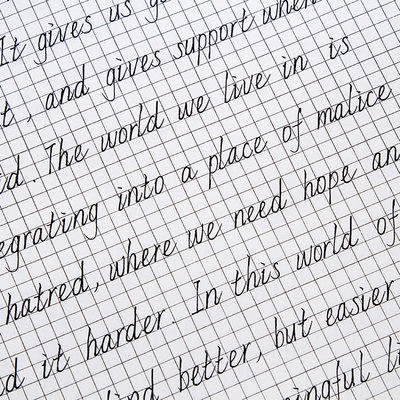 It gives us
, and gives support when
. The world we live in is
egrating into a place of malice
hatred, where we need hope an
d it harder. In this world of
better, but easier
ningful li